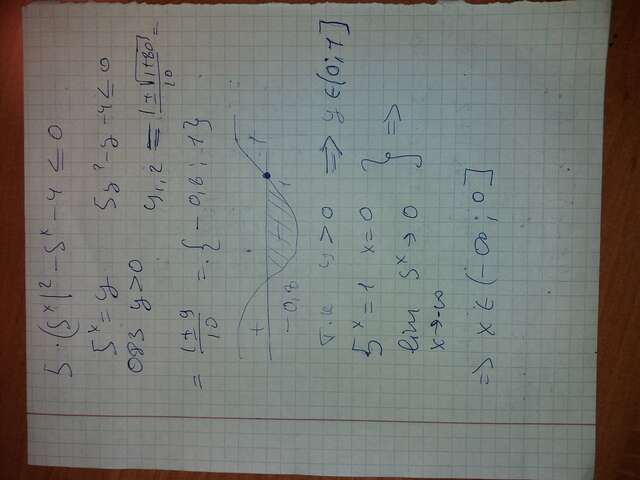 5 · (5^x)^2 - 5^x - 4 ≤ 0
5^x = y 5y^2 - y - 4 ≤ 0
ОДЗ y > 0 y1,2 = (1 ± √(1+80))/10 =
= (1 ± 9)/10 = {-0,8 ; 1}
+ - +
-0,8 1
т.к y > 0 ⇒ y ∈ (0; 1]
5^x = 1 x = 0
lim 5^x → 0 } ⇒
x → -∞
⇒ x ∈ (-∞ ; 0]